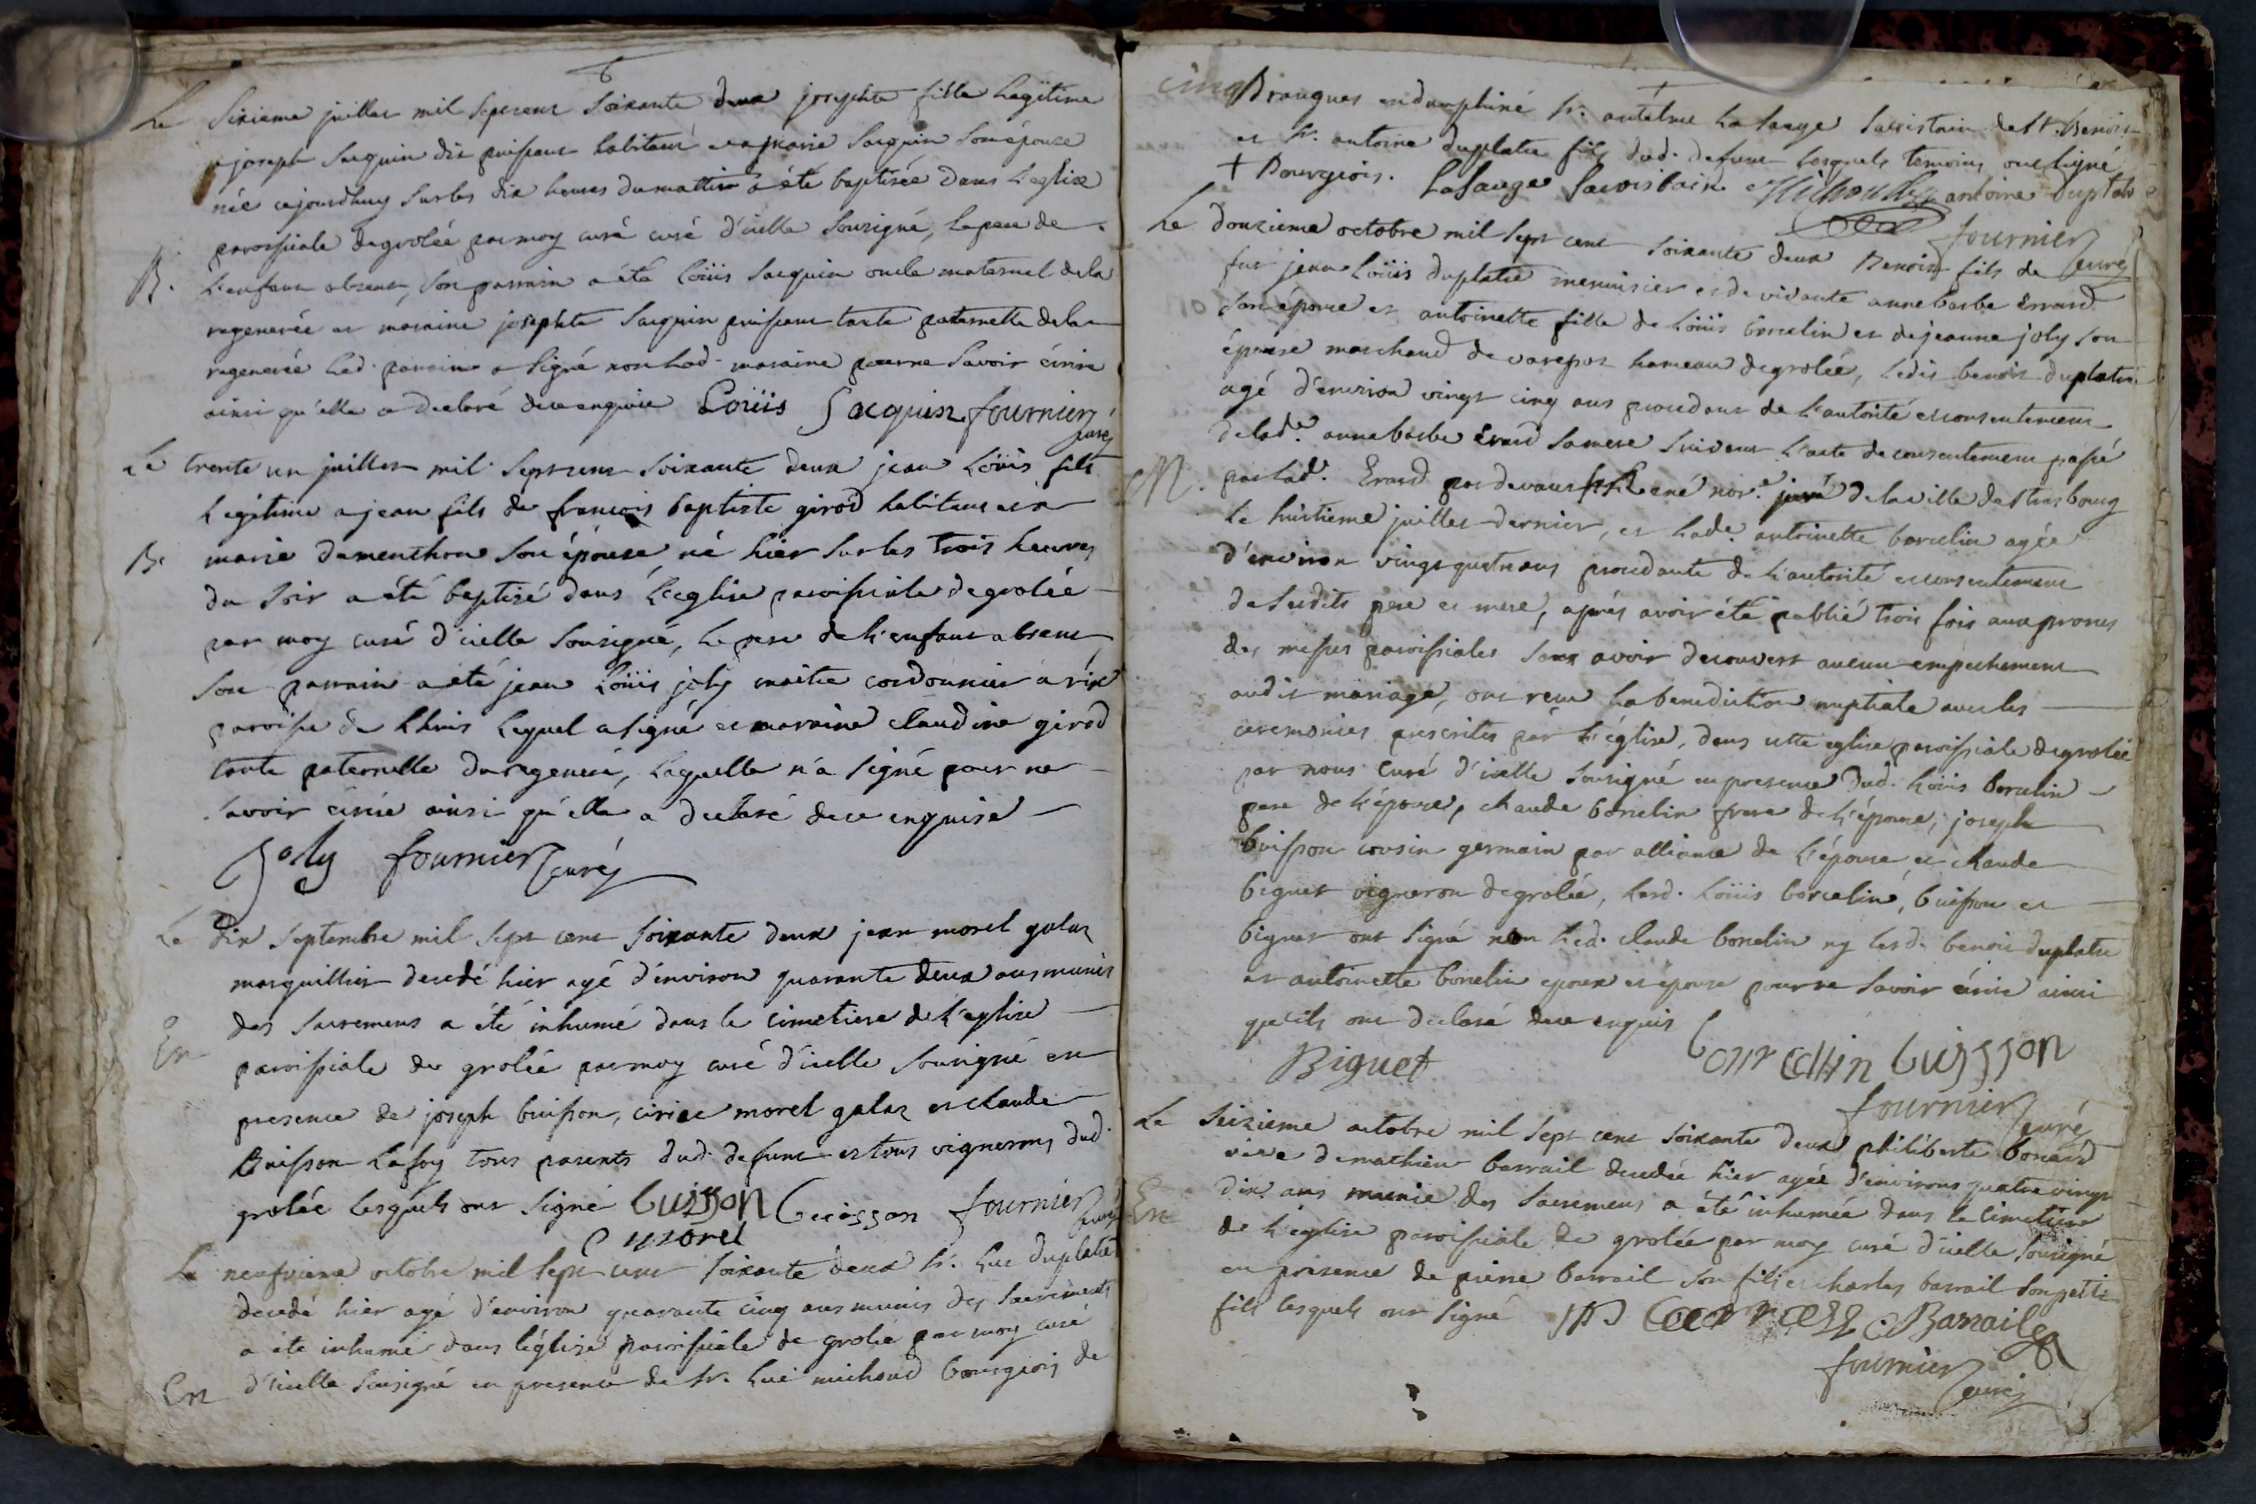 Le sixieme juillet mil sept cent soixante deux josephte fille legitime
a joseph sacquin dit puissant habitant et a marie sacquin son épouse
née cejourdhuy sur les dix heures du mattin a été baptisée dans l'eglise
paroissiale de grolée par moy curé curé d'icelle sousigné, le pere de
B.
l'enfant absent, son parrain a été Loüis sacquin oncle maternel de la
regenerée et maraine josephte sacquin puissant tante paternelle de la
regenerée led. parrain a signé non lad. maraine pour ne savoir écrire
ainsi qu'elle a declaré de ce enquise Loüis Sacquin fournier curé
Le trente un juillet mil sept cent soixante deux jean Loüis fils
legitime a jean fils de françois baptiste girod habitant et a
B.
marie dementhon son épouse, né hier sur les trois heures
du soir a été baptisé dans l'eglise paroissiale de grolée
par moy curé d'icelle sousigné, le pere de l'enfant absent
son parrain a été jean Loüis joly maitre cordonnier à rix
paroisse de Lhuis lequel a signé et maraine claudine girod
tante paternelle du regeneré, laquelle n'a signé pour ne
savoir écrire ainsi qu'elle a declaré de ce enquise
Joly fournier curé
Le dix septembre mil sept cent soixante deux jean morel galaz
marguillier decedé hier agé d'environ quarante deux ans munis
des sacremens a été inhumé dans le cimetiere de l'eglise
En
paroissiale de grolée par moy curé d'icelle sousigné en
presence de joseph buisson, ciriac morel galaz et claude
Buisson Lafoy tous parents dud. defunt et tous vignerons dud.
grolée lesquels ont signé buisson buisson fournier curé
C morel
Le neufvieme octobre mil sept cent soixante deux sr. Luc duplatre
decedé hier agé d'environ quarante cinq ans munis des sacrements
a été inhumé dans l'église paroissiale de grolée par moy curé
En
d'icelle sousigné en presence de sr. Luc michoud bourgeois de
cinq
Brangues en dauphiné sr. antelme Lasauge sacristain de St. Benoit
et sr. antoine duplatre fils dud. defunt lesquels temoins ont signé
+ Bourgeois. Lasauge sacristain Michoud antoine duplatre
fournier curé
Le douzieme octobre mil sept cent soixante deux Benoit fils de
fut jean Loüis duplatre menuisier et de vivante anne barbe Errard
son épouse et antoinette fille de Loüis borcelin et de jeanne joly son
épouse marchand de varepoz hameau de grolée, ledit benoit duplatre
agé d'environ vingt cinq ans procedant de l'autorité et consentement
de lade. anne barbe Erard sa mere suivant l'acte de consentement passé
M.
par lad. Erard par devant né nore. juré de la ville de strasbourg
le huitieme juillet dernier, et lade. antoinette borcelin agée
d'environ vingt quatre ans procedante de l'autorité et consentement
de susdits pere et mere, aprés avoir été publié trois fois aux prones
des messes paroissiales sans avoir decouvert aucun empechement
audit mariage, ont reçu la benediction nuptiale avec les
ceremonies prescrites par l'église, dans cette eglise paroissiale de grolée
par nous curé d'icelle sousigné en presence dud. Loüis borcelin
pere de l'épouse, claude borcelin frere de l'épouse, joseph
buisson cousin germain par alliance de l'épouse et claude
biguet vigneron de grolée, lesd. Loüis borcelin, buisson et
biguet ont signé non led. claude borcelin ny lesd. benoit duplatre
et antoinette borcelin epoux et épouse pour ne savoir écrire ainsi
qu'ils ont declaré de ce enquis
Biguet bourcellin buisson
fournier curé
Le seizieme octobre mil sept cent soixante deux philiberte bonard
veve de mathieu barrail decedée hier agée d'environs quatre vingt
En
dix ans munie des sacremens a été inhumée dans le cimetiere
de l'eglise paroissiale de grolée par moy curé d'icelle sousigné
en presence de pierre barrail son fils et charles barrail son petit
fils lesquels ont signé C. Barrail
fournier curé